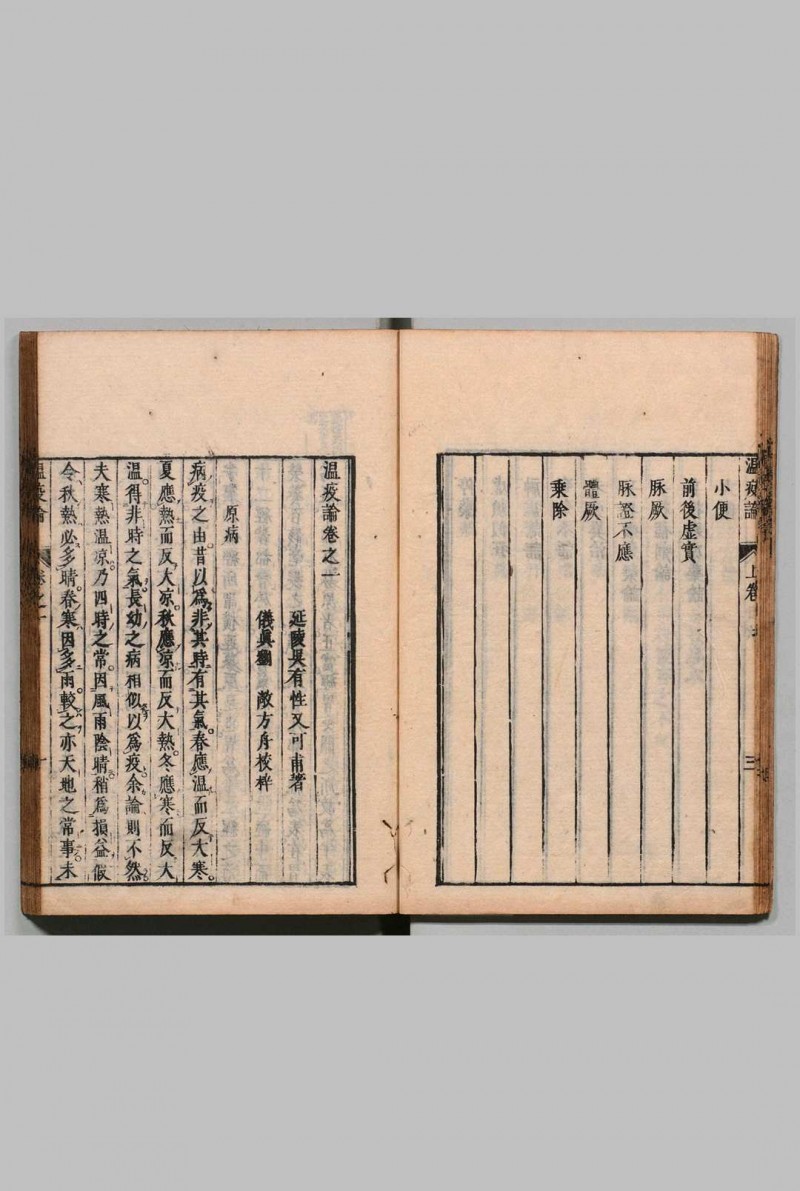 温疫論 上卷 三
小便
前後虛實
脉厥
脉證不應
體厥
乘除
温疫論卷之一
延陵吳有性又可甫著
儀眞劉 敞方舟校梓
原病
病疫之由昔以爲非其時有其氣。春應温而反大寒。
夏應熱而反大凉。秋應凉而反大熱。冬應寒而反大
温。得非時之氣。長幼之病相似以爲疫余論則不然
夫寒熱温凉。乃四時之常。因風雨陰晴稍爲損益假
令秋熱必多晴。春寒因多雨。較之亦天地之常事。未
温疫論 卷之一 一